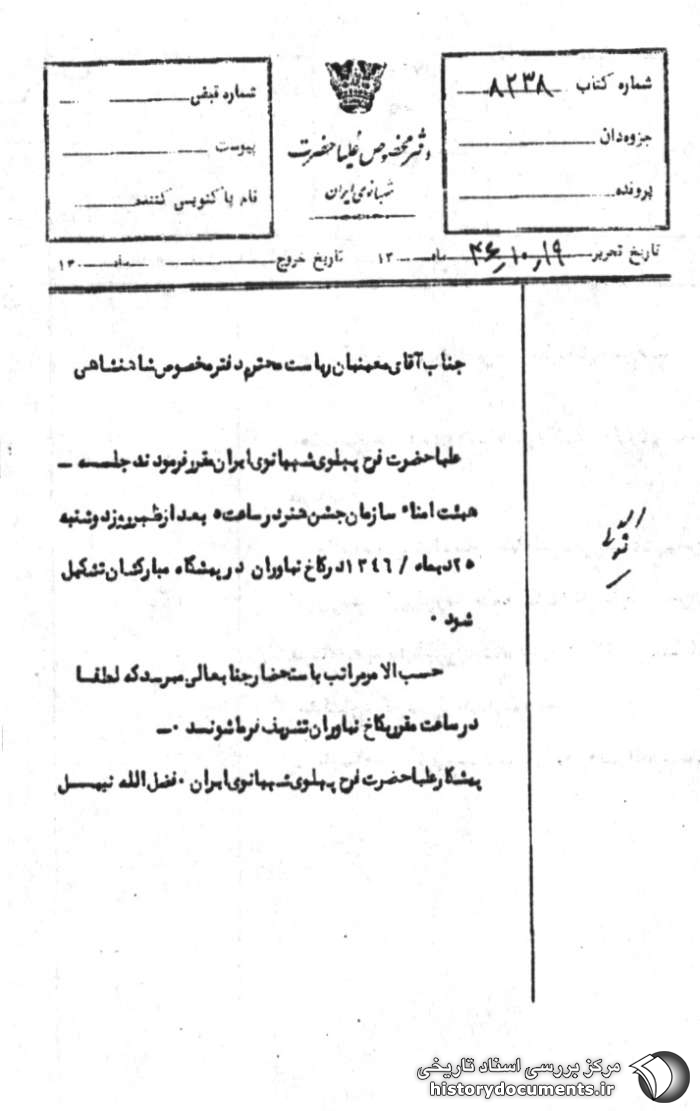 شماره کتاب ۸۲۳۸
جزوه‌دان
پرونده
دفتر مخصوص علیاحضرت
شهبانوی ایران
شماره قبض
پیوست
نام پاکنویس کننده
تاریخ تحریر ۴۶،۱۰،۱۹ ماه ۱۳
تاریخ خروج ماه ۱۳۰
جناب آقای معینیان ریاست محترم دفتر مخصوص شاهنشاهی
علیاحضرت فرح پهلوی شهبانوی ایران مقرر فرمودند جلسه –
هیئت امناء سازمان جشن هنر در ساعت ۵ بعد از ظهر روز دوشنبه
۲۵ دیماه / ۱۳۴۶ در کاخ نیاوران در پیشگاه مبارکشان تشکیل
شود ۰
حسب الامر مراتب باستحضار جنابعالی میرسد که لطفا
در ساعت مقرر بکاخ نیاوران تشریف فرما شوند ۰–
پیشکار علیاحضرت فرح پهلوی شهبانوی ایران ۰ فضل الله نبیل
مرکز بررسی اسناد تاریخی
historydocuments.ir